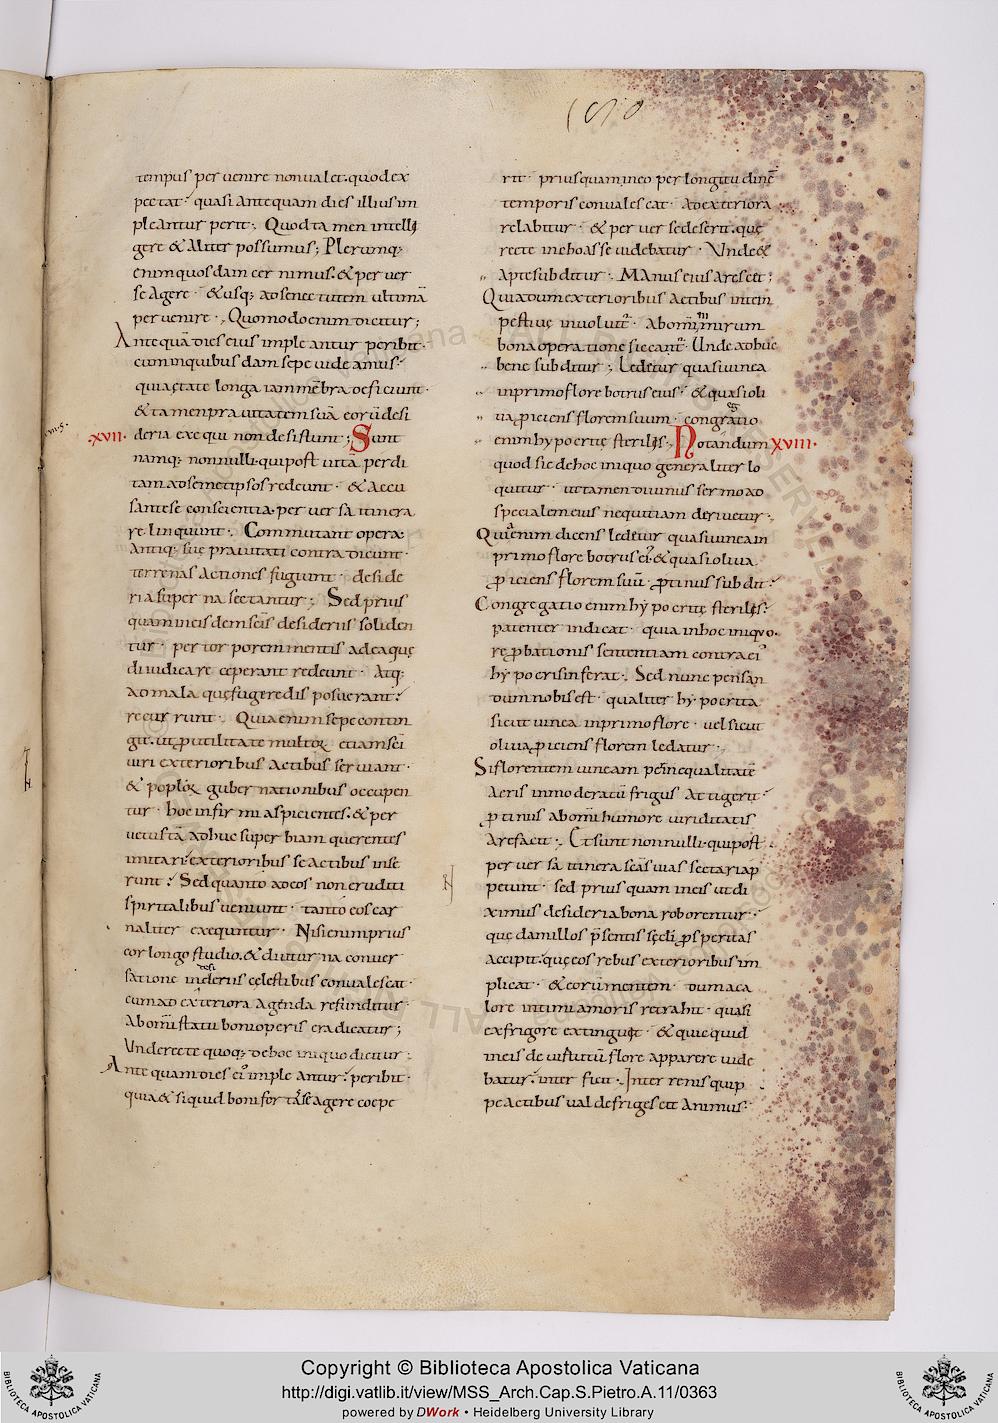 tempus peruenire nonualet. quod ex
pectat. quasi antequam dies illius im
pleantur perit. Quod tamen intellı
gere & aliter possumus; Plerumq;
enim quosdam cernimus. & peruer
se agere. & usq; ad senectutem ultimā
peruenire. Quomodo enim dicitur;
Antequā dies eius impleantur peribit.
cum in quibusdam sepe uideamus.
quia ętate longa iam mēbra deficiunt.
& tamen prauitatem suā eorū desi
xvii. deria exequi non desistunt; Sunt
namq; nonnulli. qui post uitā perdi
tam ad semetipsos redeunt. & accu
sante se conscientia. peruersa itinera
relinquunt. Commutant opera.
antiq; suę prauitati contradicunt.
terrenas actiones fugiunt. deside
ria superna sectantur; Sed prius
quam in eisdem scīs desideriis soliden
tur. per torporem mentis ad ea quę
diiudicare ceperant redeunt. Atq;
ad mala quę fugere disposuerant.
recurrunt. Quia enim sepe contin
git. ut ꝓ utilitate multoꝝ etiam scī
uiri exterioribus actibus seruiant.
& poploꝝ gubernationibus occupen
tur. hoc infirmi aspicientes. & per
uetustā adhuc superbiam querentes
imitari. exterioribus se actibus inse
runt. Sed quanto ad eos non eruditi
spiritalibus ueniunt. tanto eos car
naliter exequuntur. Nisi enim prius
cor longo studio. & diuturna conuer
satione in desideriis cęlestibus conualescat.
cum ad exteriora agenda refunditur.
ab omī statu boni operis eradicatur;
Unde recte quoq; de hoc iniquo dicitur.
Antequam dies ei' impleantur. peribit.
quia & si quid boni fortasse agere coepe
rit. priusquam in eo per longitudinē
temporis conualescat. ad exteriora
relabitur. & peruerse deserit. quę
recte inchoasse uidebatur. Unde &
apte subditur. Manus eius arescet;
Quia dum exterioribus actibus intem
pestiue inuoluit᷑. ab omī mirum
bona operatione siccant᷑. Unde adhuc
bene subditur; Ledetur quasi uinea
in primo flore botrus eius. & quasi oli
ua ꝓiciens florem suum. congregatio
enim hypocritę sterilis. Notandum xviii.
quod sic de hoc iniquo generaliter lo
quitur. ut tamen diuinus sermo ad
specialem eius nequitiam deriuetur.
Qui enim dicens ledetur quasi uinea in
primo flore botrus ei'. & quasi oliua
ꝓiciens florem suū. ꝓtinus subdit.
Congregatio enim hypocritę sterilis.
patenter indicat. quia in hoc iniquo.
reꝓbationis sententiam contra ei'
hypocrisin ferat. Sed nunc pensan
dum nobis est. qualiter hypocrita
sicut uinea in primo flore. uel sicut
oliua ꝓiciens florem ledatur.
Si florentem uineam per inequalitatē
aeris inmoderatū frigus attigerit.
ꝓtinus ab omī humore uiriditatis
arefacit. Et sunt nonnulli. qui post
peruersa itinera scās uias sectari ap
petunt. sed priusquam in eis ut di
ximus desideria bona roborentur.
quędam illos p̄sentis sęcli ꝓsperitas
accipit. quę eos rebus exterioribus im
plicat. & eorū mentem dum a ca
lore intimi amoris retrahit. quasi
ex frigore extinguit. & quicquid
in eis de uirtutū flore apparere uide
batur. interficit. In terrenis quip
pe actibus ualde frigescit animus.
Copyright © Biblioteca Apostolica Vaticana
http://digi.vatlib.it/view/MSS_Arch.Cap.S.Pietro.A.11/0363
powered by DWork • Heidelberg University Library
BIBLIOTECA APOSTOLICA VATICANA
BIBLIOTECA APOSTOLICA VATICANA